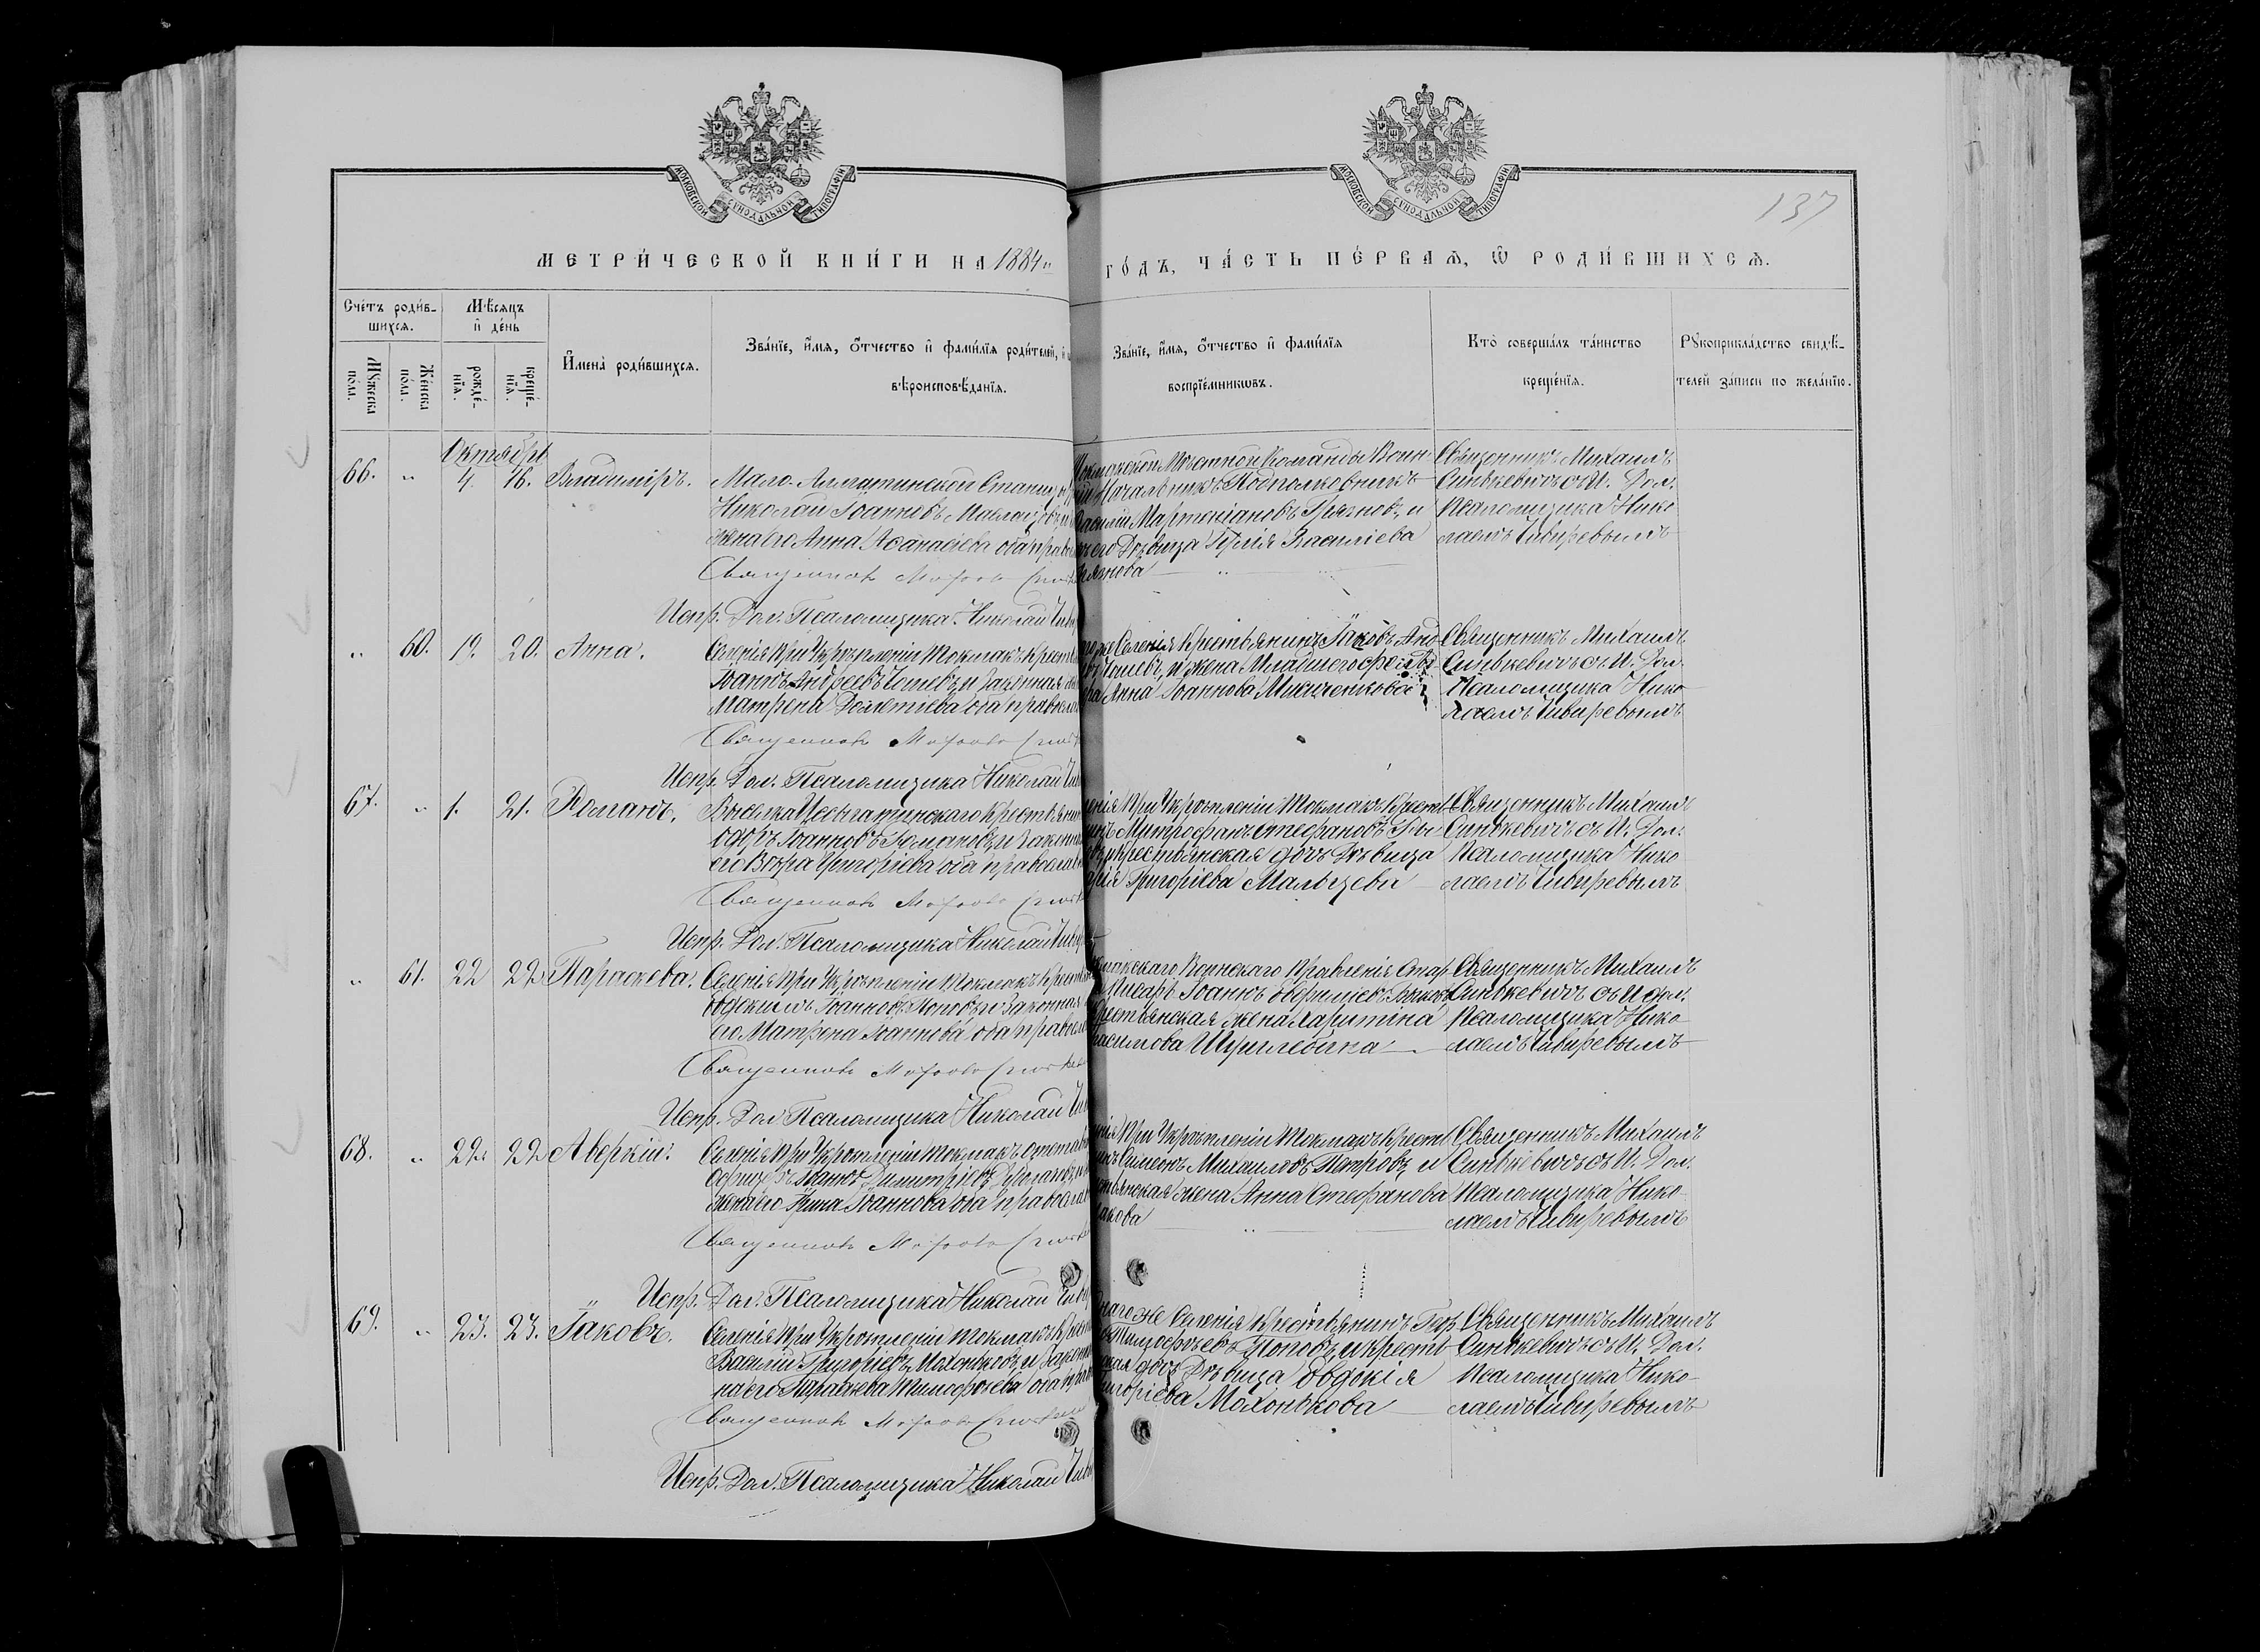 МОСКОВСКОЙ СѴНОДАЛЬНОЙ ТИПОГРАФІИ
МОСКОВСКОЙ СѴНОДАЛЬНОЙ ТИПОГРАФІИ
137
МЕТРИ́ЧЕСКОЙ КНИ́ГИ НА 1884й
ГО́ДЪ, ЧА́СТЬ ПЕ́РВАѦ, Ѡ РОДИ́ВШИХСѦ.
Сче́тъ роди́в-
шихсѧ.
Мѣ́сяцъ
и де́нь
Мꙋ́жеска
по́ла.
Же́нска
по́ла.
рожде́-
нїѧ.
креще́-
нїѧ.
И҆мена̀ роди́вшихсѧ.
Зва́нїе, и҆́мѧ, ѻ҆́тчество и҆ фами́лїѧ роди́телей, и҆
вѣроисповѣ́данїѧ.
Зва́нїе, и҆́мѧ, ѻ҆́тчество и҆ фами́лїѧ
воспрїе́мникѡвъ.
Кто̀ соверша́лъ та́инство
креще́нїѧ.
Рꙋкоприкла́дство свидѣ́-
телей за́писи по жела́нїю.
Октября
66. " 4. 16. Владиміръ.
Мало-Алматинской Станицы
Николай Іоанновъ
жена его Анна Аѳанасіева оба прав
Священникъ
Испр. Дол. Псаломщика Николай
Мѣстной Команды Воин
Начальникъ Подполковникъ
Василій Грязновъ, и
его Дѣвица Васильева
Грязнова
Священникъ Михаилъ
Синькевичъ съ И. Дол.
Псаломщика Нико
лаемъ Чивиревымъ
" 60. 19. 20. Анна.
Селенія при Укрѣпленіи Токмакъ Крест
Іоаннъ Андреевъ и законная
Матрена оба правосла
Священникъ
Испр. Дол. Псаломщика Николай
Селенія крестьянинъ Іаковъ Анд
и жена Младшаго
Анна Іоаннова
Священникъ Михаилъ
Синькевичъ съ И. Дол.
Псаломщика Нико
лаемъ Чивиревымъ
67. " 1. 21. Романъ.
Выселка Крестьянин
Іоанновъ и законн
его Вѣра Григоріева оба православ
Священникъ
Испр. Дол. Псаломщика Николай
при Укрѣпленіи Токмакъ Крест
Митрофанъ Стефановъ
крестьянская дочь Дѣвица
Григоріева Мальцева
Священникъ Михаилъ
Синькевичъ съ И. Дол.
Псаломщика Нико
лаемъ Чивиревымъ
" 61. 22 22 Параскева.
Селенія при Укрѣпленіи Токмакъ крест
Евдокимъ Іоанновъ Поповъ и законная
его Матрена Іоаннова оба правосл
Священникъ
Испр. Дол. Псаломщика Николай
Воинскаго Правленія Стар
Писарь Іоаннъ
крестьянская жена Харитина
Священникъ Михаилъ
Синькевичъ съ И. Дол.
Псаломщика Нико
лаемъ Чивиревымъ
68. " 22. 22 Аверкій.
Селенія при Укрѣпленіи Токмакъ отстав
Іоаннъ Димитріевъ
жена его Ирина Іоаннова оба православ
Священникъ
Испр. Дол. Псаломщика Николай
при Укрѣпленіи Токмакъ Крест
Симеонъ Михаиловъ Петровъ, и
жена Анна Стефанова
Священникъ Михаилъ
Синькевичъ съ И. Дол.
Псаломщика Нико
лаемъ Чивиревымъ
69. " 23. 23. Іаковъ.
Селенія при Укрѣпленіи Токмакъ Крест
Василій Григоріевъ Мохоньковъ, и закон
на его Параскева Тимофѣева оба прав
Священникъ
Испр. Дол. Псаломщика Николай
же Селенія крестьянинъ
Тимофѣевъ Поповъ, и крест
дочь Дѣвица Евдокія
Григоріева Мохонькова
Священникъ Михаилъ
Синькевичъ съ И. Дол.
Псаломщика Нико-
лаемъ Чивиревымъ